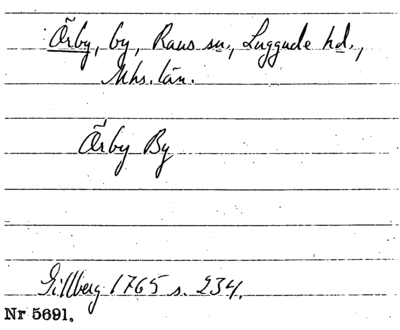 Örby, by, Raus sn., Luggude hd.,
Mhs. län.
Örby By
Gillberg 1765 s. 234.
Nr 5691.